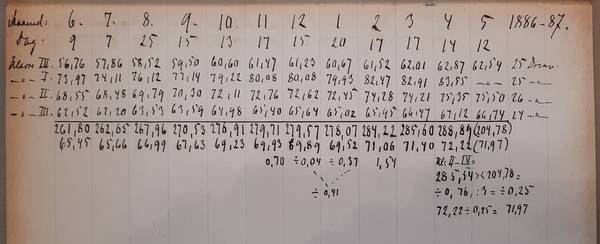 Maaned: 6. 7. 8. 9. 10. 11 12 1 2 3 4 5 1886-87.
Dag: 9 7 25 15 13 17 15 20 17 17 14 12
Klasse IV. 56,76 57,86 58,52 59,50 60,60 61,47 61,23 60,67 61,52 62,01 62,87 62,54 25
-"- I. 73,97 74,11 76,12 77,14 79,22 80,08 80,08 79,93 82,47 82,91 83,55 -"- 25 -"-
-"- II. 68,55 68,48 69,79 70,30 72,11 72,76 72,62 72,45 74,28 74,21 75,35 75,50 26 -"-
-"- III. 62,52 62,20 63,53 63,59 64,98 65,40 65,64 65,02 65,95 66,47 67,12 66,74 24 -"-
261,80 262,65 267,96 270,53 276,91 279,71 279,57 278,07 284,22 285,60 288,89 (204,78)
65,45 65,66 66,99 67,63 69,23 69,93 69,89 69,52 71,06 71,40 72,22 (71,97)
0,70 ÷0,04 ÷0,37 1,54 II-IV=
÷0,41 205,54><204,78=
÷0,76, :3=÷0,25
72,22÷0,25= 71,97